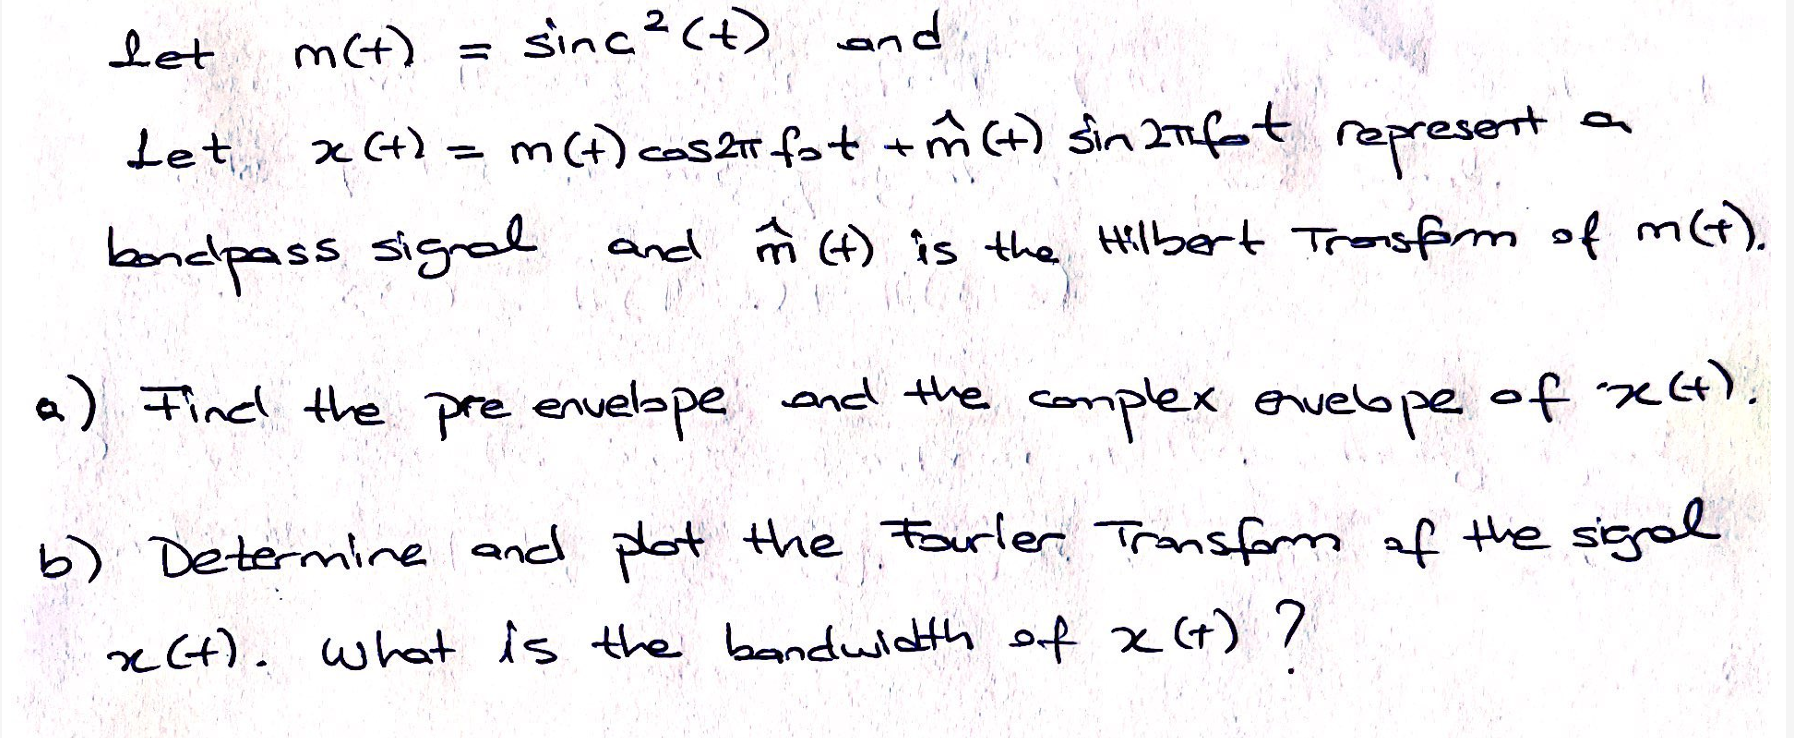 Let m(t) = sinc²(t) and
Let x(t) = m(t) cos2πf₀t + m̂(t) sin2πf₀t represent a
bandpass signal and m̂(t) is the Hilbert Transform of m(t).
a) Find the pre envelope and the complex envelope of x(t).
b) Determine and plot the Fourier Transform of the signal
x(t). What is the bandwidth of x(t)?